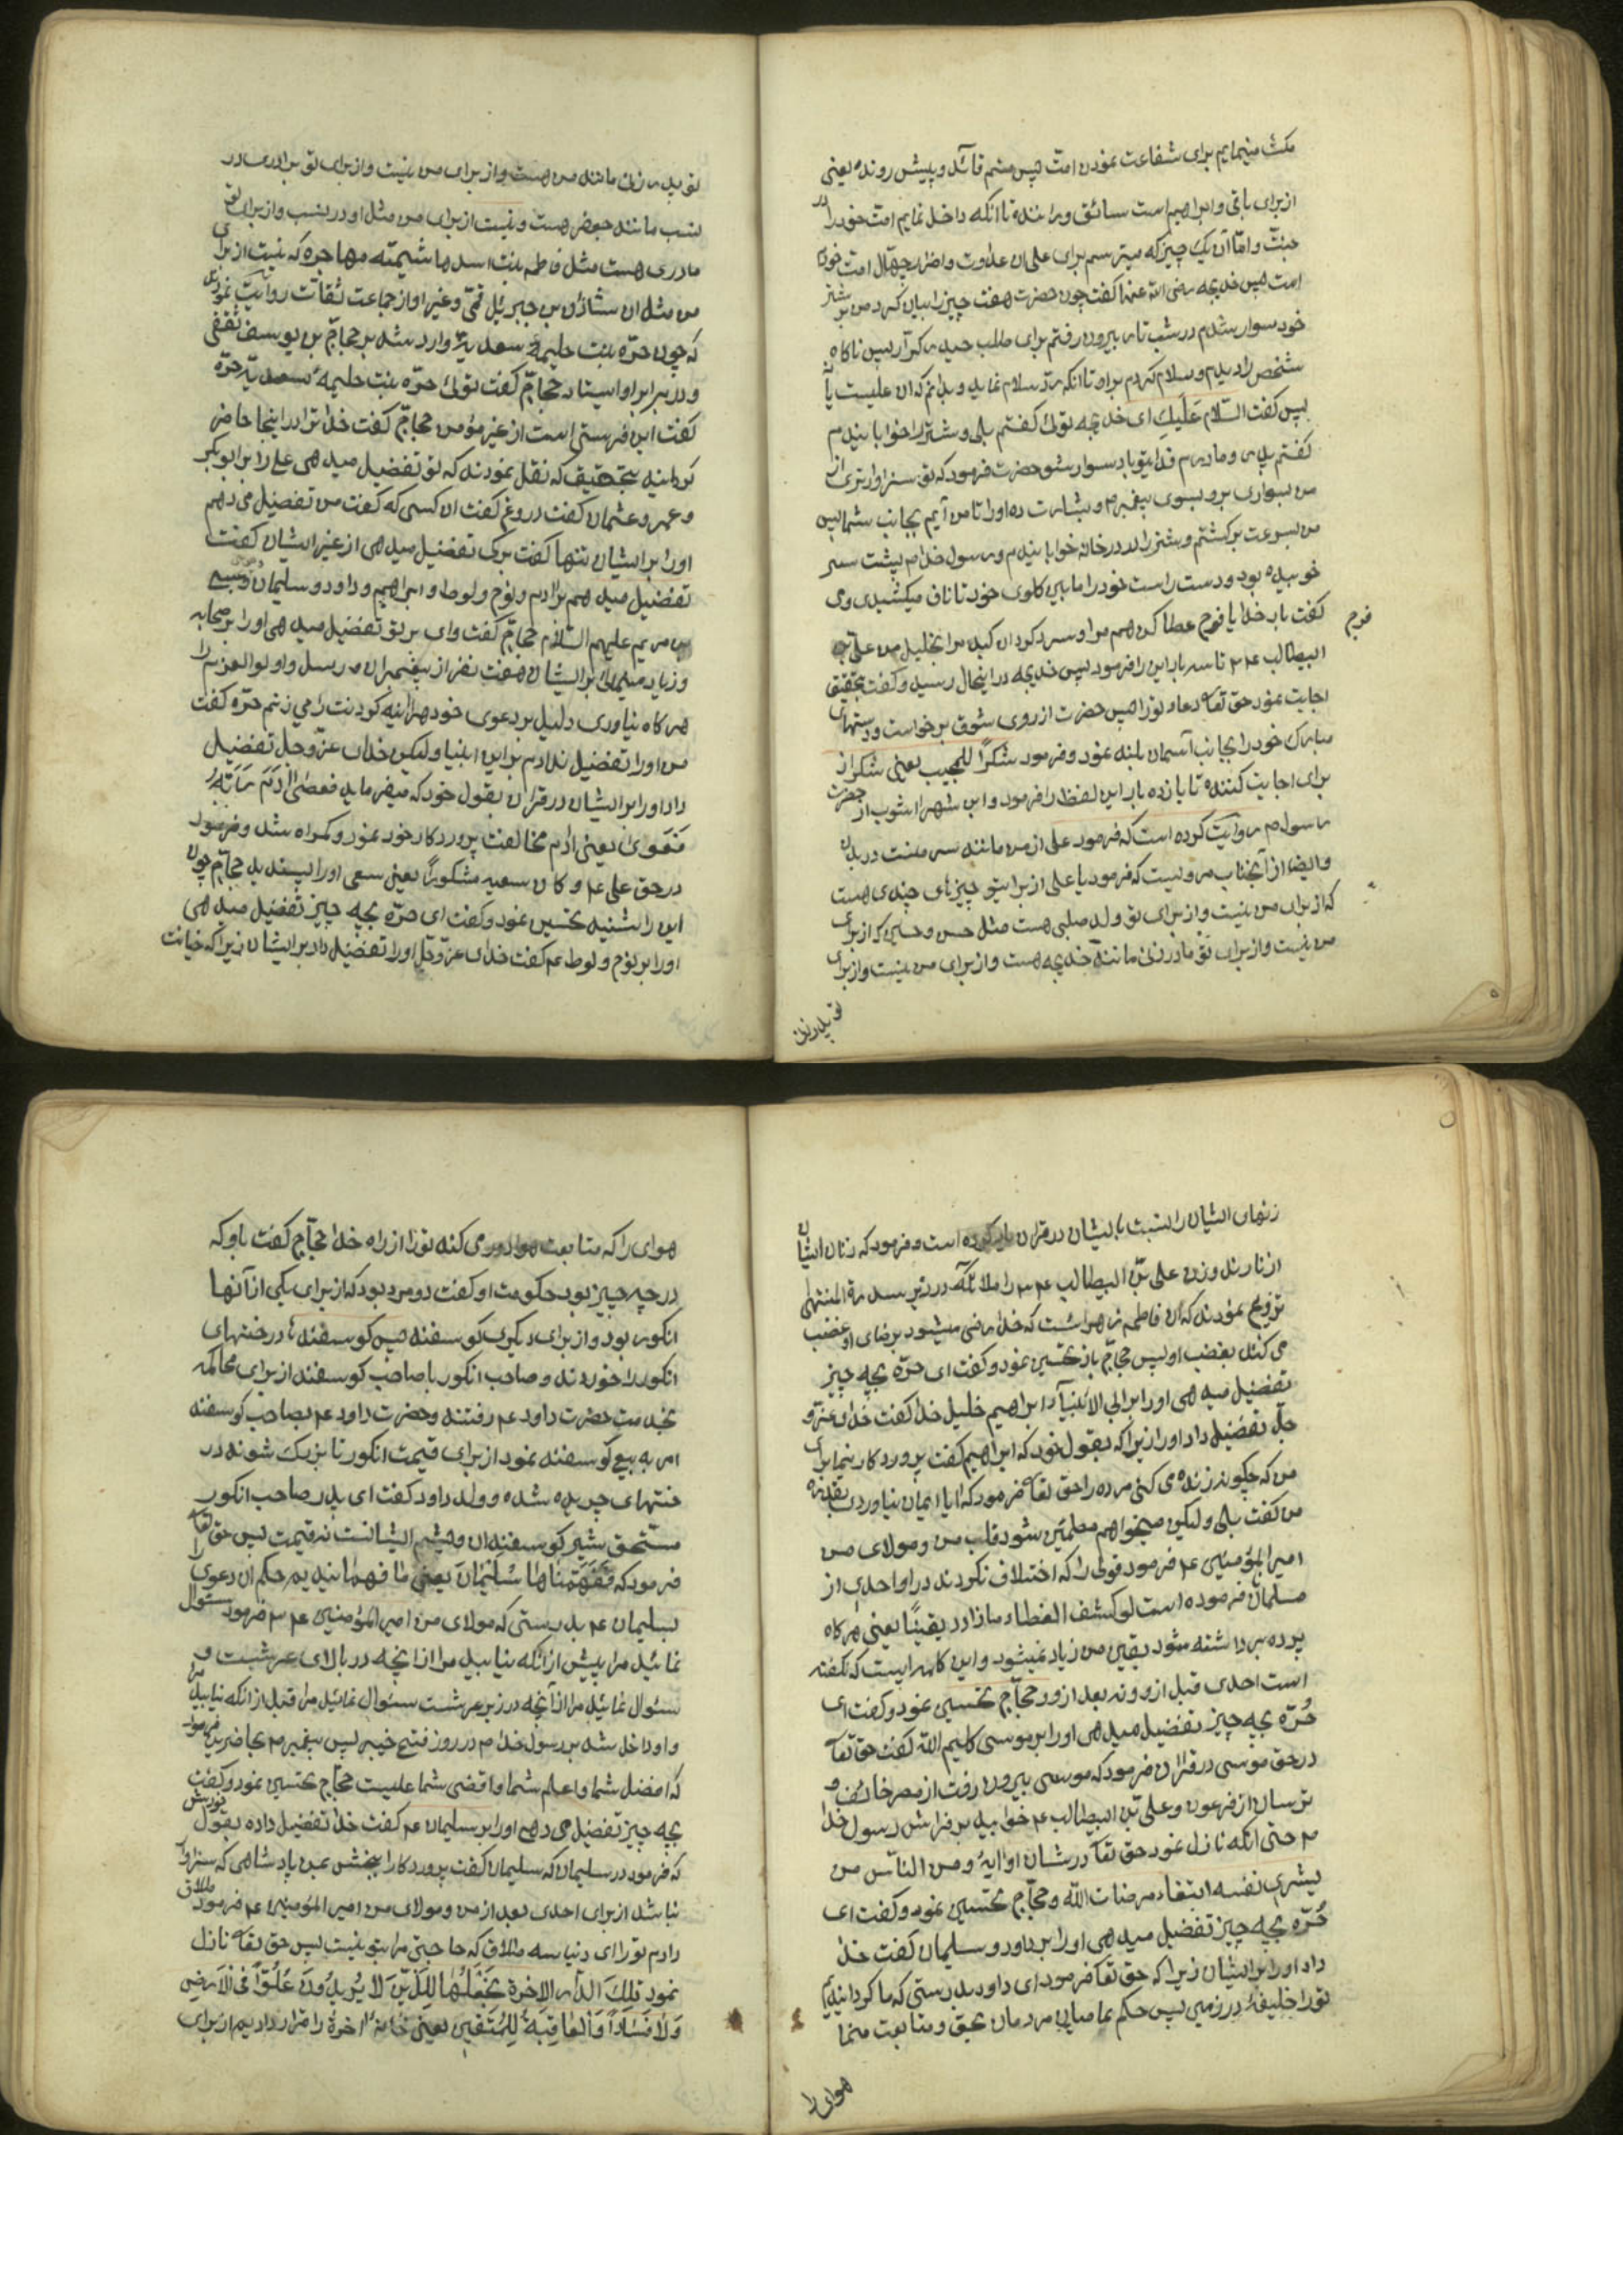 مکث مینمایم برای شفاعت نمودن امت پس منم قائد و پیش رونده یعنی
از برای باقی و ابراهیم است سائق و راننده تا انکه داخل نمایم امت خود را در
جنت و اما آن یک چیز که میترسم برای علی ان عداوت و اضرار جهال امت خود
امت پس خدیجه رضی الله عنها کفت چون حضرت هفت چیز را بیان کرد من بر شتر
خود سوار شدم در شب تار بیرون رفتم برای طلب حیدر کرار پس ناکاه
شخص را دیدم و سلام کردم بر او تا انکه رد سلام نماید و بدانم که ان علیست یا نه
پس کفت السلام علیک ای خدیجه توئی کفتم بلی و شتر را خوابانیدم
کفتم پدر و مادرم فدای تو باد سوار شو حضرت فرمود که تو سزاوارتری از
من بسواری برو بسوی پیغمبر م و بشارت ده او را تا من آیم بجانب شما پس
من بسرعت برکشتم و شتر را در در خانه خوابانیدم و رسول خدا م پشت سر
خوبیده بود و دست راست خود را مابین کلوی خود تا ناف میکشیدی و می
کفت بار خدایا فرج عطا کن هم مرا و سرد کردان کبد مرا بخلیل من علی بن
فرج
ابیطالب ع م تا سه بار این را فرمود پس خدیجه در اینحال رسید و کفت بتحقیق
اجابت نمود حق تعا دعاء تورا پس حضرت از روی شوق برخواست و دستهای
مبارک خود را بجانب آسمان بلند نمود و فرمود شکرا للمجیب یعنی شکر از
برای اجابت کننده تا یازده بار این لفظ را فرمود و ابن شهراشوب از حضرت
رسول م روایت کرده است که فرمود علی از من مانند سر منست در بدن
و ایضا از آنجناب مرویست که فرمود یا علی از برای تو چیزهای چندی هست
که از برای من نیست و از برای تو ولد صلبی هست مثل حسن و حسین که از برای
من نیست و از برای تو مادر زنی مانند خدیجه هست و از برای من نیست و از برای
تو پدر زن
تو پدر زن مانند من هست و از برای من نیست و از برای تو برادری در
نسب مانند جعفر هست و نیست از برای من مثل او در نسب و از برای تو
مادری هست مثل فاطمه بنت اسد هاشمیه مهاجره که نیست از برای
من مثل ان شاذان بن جبرئیل قمی و غیر او از جماعت ثقات روایت نموده اند
که چون حره بنت حلیمه سعدیه وارد شد بر حجاج بن یوسف ثقفی
و در برابر او ایستاد حجاج کفت توئی حره بنت حلیمه سعدیه حره
کفت این فرستی است از غیر مؤمن حجاج کفت خدا ترا در اینجا حاضر
کردانید بتحقیق که نقل نمودند که تو تفضیل میدهی علی را بر ابوبکر
و عمر و عثمان کفت دروغ کفت ان کسی که کفت من تفضیل می دهم
او را بر ایشان تنها کفت برکی تفضیل میدهی از غیر ایشان کفت
تفضیل میدهم بر ادم و نوح و لوط و ابراهیم و داود و سلیمان و عیسی
بن مریم علیهم السلام حجاج کفت وای بر تو تفضیل میدهی او را بر صحابه
و زیاد میدانی بر ایشان هفت نفر از پیغمبران مرسل و اولوا العزم را
هر کاه نیاوری دلیل بر دعوی خود هراینه کردنت را می زنم حره کفت
من او را تفضیل ندادم بر این انبیا ولیکن خدای عز وجل تفضیل
داد او را بر ایشان در قران بقول خود که میفرماید فعصی ادم ربه
فغوی یعنی ادم مخالفت پروردکار خود نمود و کمراه شد و فرمود
در حق علی ع م و کان سعیه مشکورا یعنی سعی او را پسندید حجاج چون
این را شنید تحسین نمود و کفت ای حره بچه چیز تفضیل میدهی
او را بر نوح و لوط ع م کفت خدای عز وجل او را تفضیل داد بر ایشان زیرا که خیانت
زنهای ایشان را نسبت بایشان در قران یاد کرده است و فرمود که زنان ایشان
از نارند و زن علی بن ابیطالب ع م را ملائکه در زیر سدرة المنتهی
تزویج نمودند که ان فاطمه زهراست که خدا راضی میشود برضای او و غضب
می کند بغضب او پس حجاج باز تحسین نمود و کفت ای حره بچه چیز
تفضیل میدهی او را بر ابی الانبیآء ابراهیم خلیل خدا کفت خدای عز و
جل تفضیل داد او را زیرا که بقول خود که ابراهیم کفت پروردکارا بنما برای
من که چکونه زنده می کنی مرده را حق تعا فرمود که ایا ایمان نیاوردی بقدرت
من کفت بلی ولیکن میخواهم مطمئن شود قلب من و مولای من
امیر المؤمنین ع م فرمود قولی را که اختلاف نکردند در او احدی از
مسلمان فرموده است لو کشف الغطاء ما ازددت یقینا یعنی هر کاه
پرده برداشته شود یقین من زیاد نمیشود و این کلمه ایست که نکفته
است احدی قبل از و و نه بعد از و حجاج تحسین نمود و کفت ای
حره بچه چیز تفضیل میدهی او را بر موسی کلیم الله کفت حق تعا
در حق موسی در قران فرمود که موسی بیرون رفت از مصر خائف و
ترسان از فرعون و علی بن ابیطالب ع م خوابید بر فراش رسول خدا
م حتی انکه نازل نمود حق تعا در شان او ایه و من الناس من
یشری نفسه ابتغاء مرضات الله و حجاج تحسین نمود و کفت ای
حره بچه چیز تفضیل میدهی او را بر داود و سلیمان کفت خدا
داد او را بر ایشان زیرا که حق تعا فرمود ای داود بدرستی که ما کردانیدیم
تورا خلیفه در زمین پس حکم نما مابین مردمان بحق و متابعت منما
هوای را
هوای را که متابعت هوا دور می کند تورا از راه خدا حجاج کفت باو که
در چه چیز بود حکومت او کفت دو مرد بود که از برای یکی از آنها
انکور بود و از برای دیکری کوسفند پس کوسفندها درختهای
انکور را خوردند و صاحب انکور با صاحب کوسفند از برای محاکمه
بخدمت حضرت داود ع م رفتند و حضرت داود ع م بصاحب کوسفند
امر به بیع کوسفند نمود از برای قیمت انکور تا نزیک شوند در
ختهای چریده شده و ولد داود کفت ای پدر صاحب انکور
مستحق شیر کوسفندان و پشم ایشانست نه قیمت پس حق تعا
فرمود که ففهمناها سلیمان یعنی ما فهمانیدیم حکم ان دعوی را
بسلیمان ع م بدرستی که مولای من امیر المؤمنین ع م فرمود سئوال
نمائید مرا پیش از انکه نیابید مرا از انچه در بالای عرشست و
سئوال نمائید مرا از آنچه در زیر عرشست سئوال نمائید مرا قبل از انکه نیابید مرا
و او داخل شد بر رسول خدا م در روز فتح خیبر پس پیغمبر م بحاضرین فرمود
که افضل شما و اعلم شما و اقضی شما علیست حجاج تحسین نمود و کفت
بچه چیز تفضیل می دهی او را بر سلیمان ع م کفت خدا تفضیل داده بقول خودش
که فرمود در سلیمان که سلیمان کفت پروردکارا ببخش بمن پادشاهی که سزاوار
نباشد از برای احدی بعد از من و مولای من امیر المؤمنین ع م فرمود طلاق
دادم تورا ای دنیا سه طلاق که حاجتی مرا بتو نیست پس حق تعا نازل
نمود تلک الدار الاخرة نجعلها للذین لا یریدون علوا فی الارض
ولا فسادا والعاقبة للمتقین یعنی خانه اخرة را قرار دادیم از برای